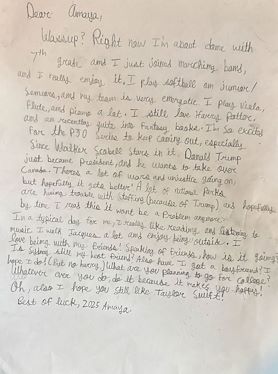 Dear Amaya,
Wassup? Right now I'm about done with
7th grade and I just joined marching band,
and I really enjoy it, I play softball on junior/
Seniors, and my team is very energetic. I play Viola,
Flute, and piano a lot. I still love Harry Potter,
and am recently into Fantasy books. I'm so excited
for the PJO series to keep coming out, especially
Since Walker Scobell stars in it. Donald Trump
just became president, and he wants to take over
Canada. Theres a lot of wars and going on,
but hopefully it gets better! A lot of national Parks
are having trouble with Staffing (because of Trump), and hopefully
by the time I read this it wont be a Problem anymore.
In a typical day for me, I really like reading, and listening to
music. I walk Jacques a lot and enjoy being outside. I
love being with my friends! Speaking of friends, how is it going?
Is still my best friend? Also have I got a boyfriend? I
hope I do! (but no hurry) What are you planning to go for college?
Whatever you do, do it because it makes you happy!
Oh, also I hope you still like Taylor Swift!
Best of luck, 2025 Amaya